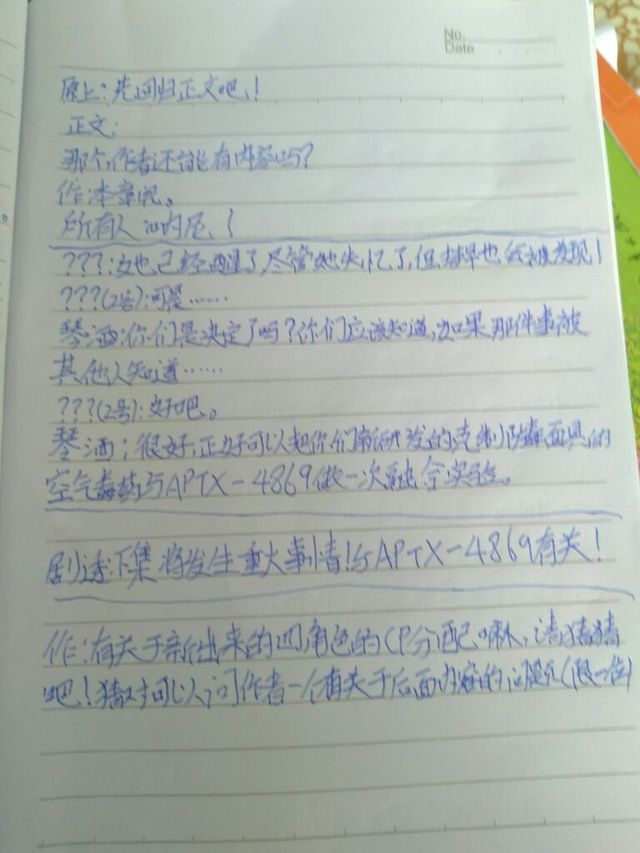 No.
Date
原上:先回归正文吧!
正文:
那个,作者还能有内容吗?
作:本章完。
所有人:
???:她已经醒了,尽管她失忆了,但推早也会被发现!
???(2号):可是……
琴酒:你们是决定了吗?你们应该知道,如果那件事被
其他人知道……
???(2号):好吧。
琴酒:很好,正好可以把你们新研发的克制防毒面具的
空气毒药与APTX-4869做一次融合实验。
剧透:下集将发生重大事情!与APTX-4869有关!
作:有关于新出来的四角色的CP分配嘛,请猜猜
吧!猜对可以问作者一个有关于后面内容的问题(限一位)